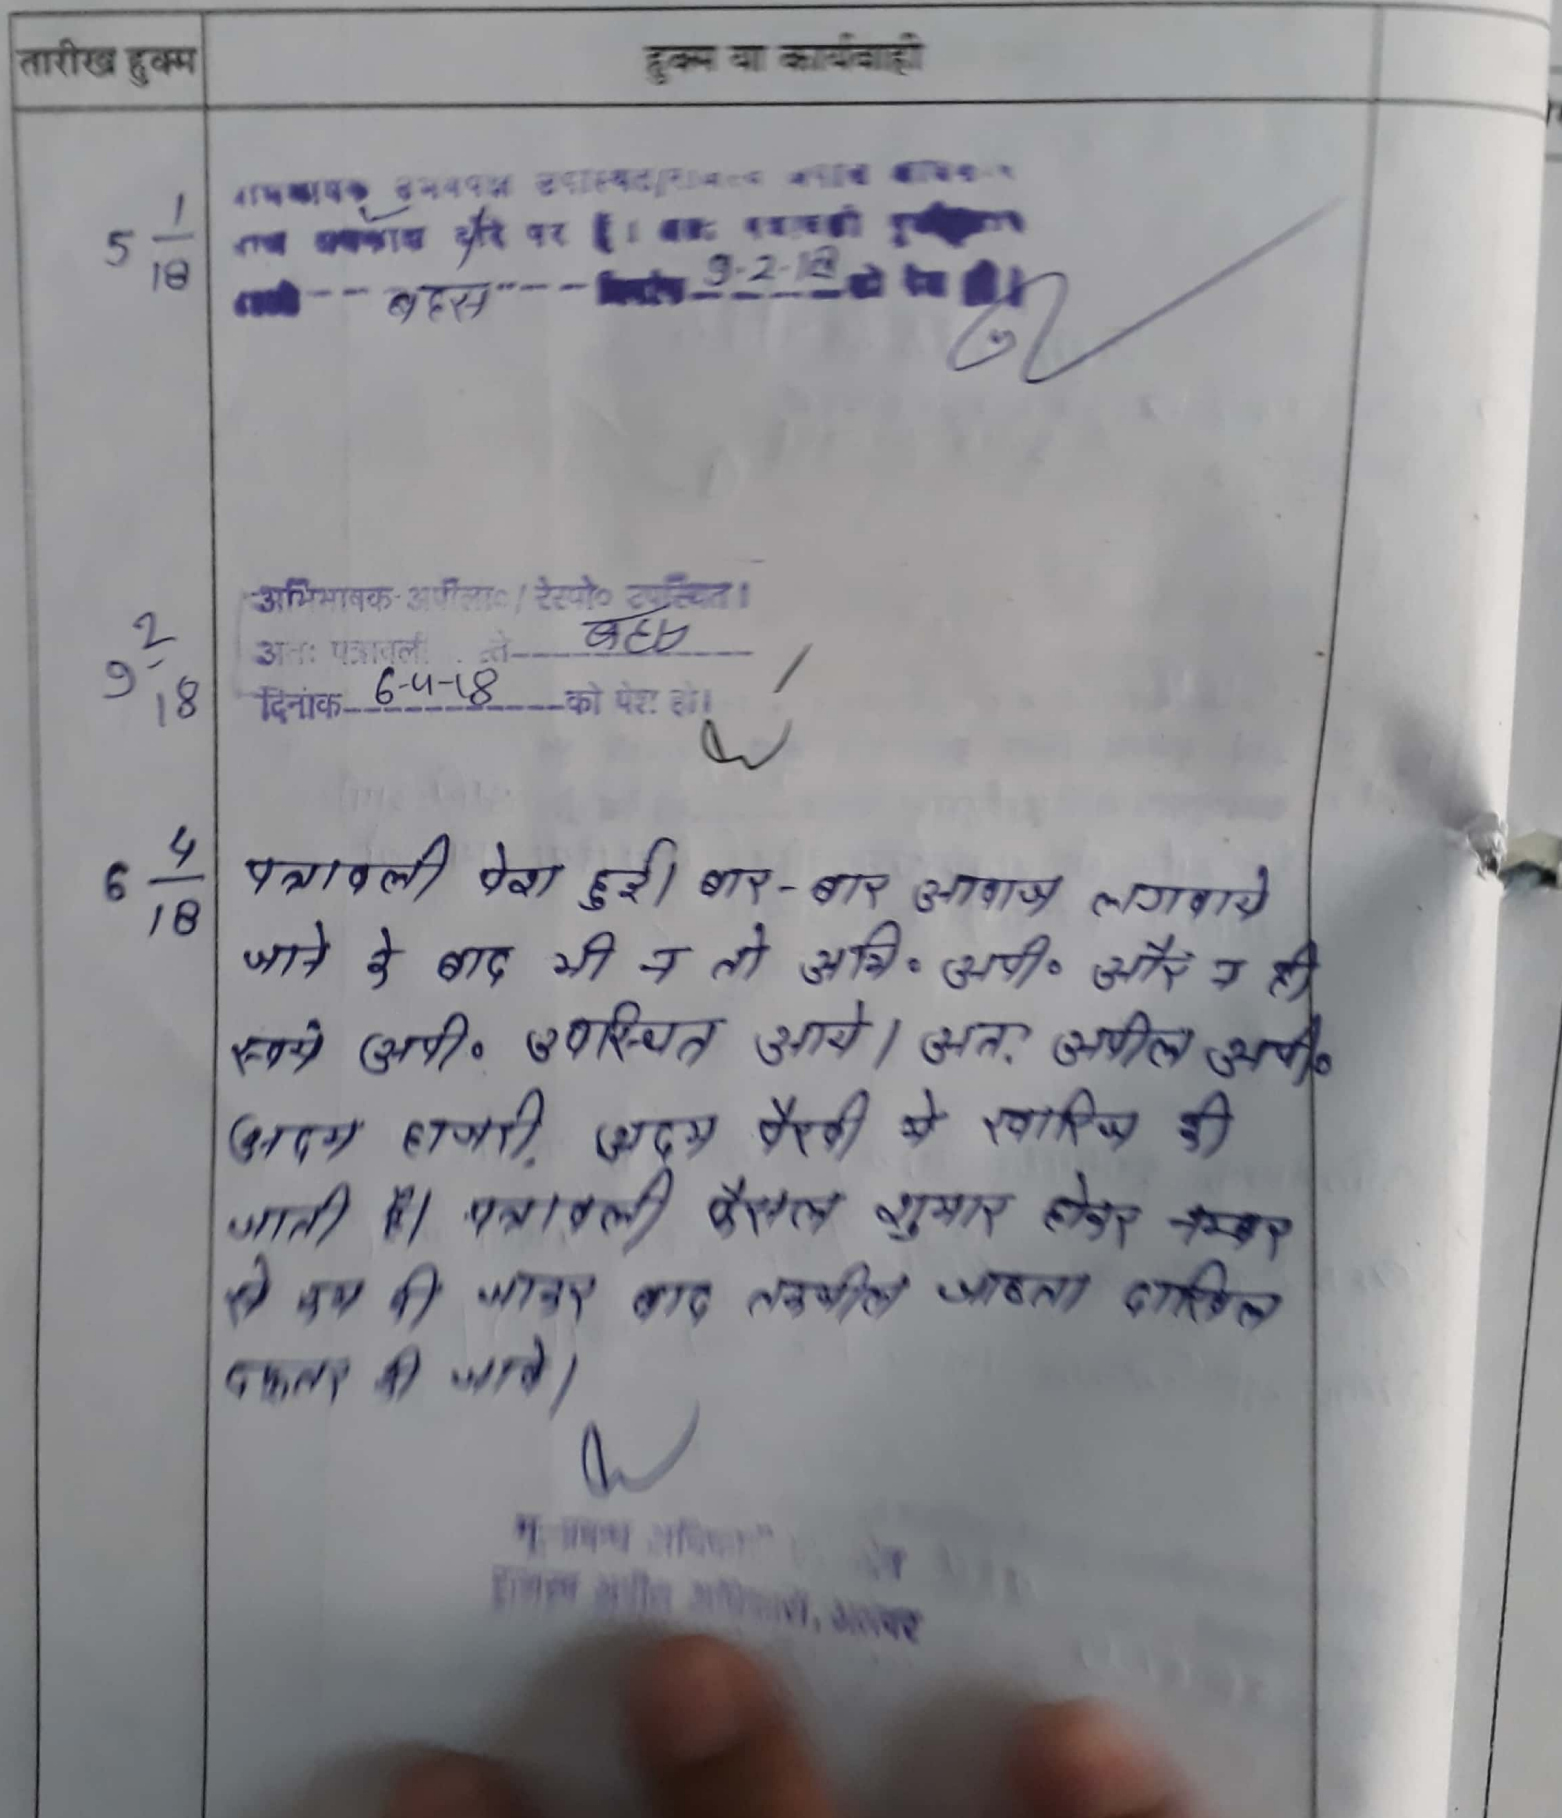 तारीख हुक्म
हुक्म या कार्यवाही
5 1/18
उभयपक्ष
पर है।
बहस 9-2-18 को पेश हो।
9 2/18
अभिभाषक अपीला०/रेस्पो० उपस्थित।
अतः पत्रावली बहस
दिनांक 6-4-18 को पेश हो।
6 4/18
पत्रावली पेश हुई। बार-बार आवाज लगवाये
जाने के बाद भी न तो अभि० अपी० और न ही
स्वयं अपी० उपस्थित आये। अतः अपील अपी०
अदम हाजरी, अदम पैरवी मे खारिज की
जाती है। पत्रावली फैसल शुमार होकर नम्बर
से कम की जाकर बाद तकमील जाब्ता दाखिल
दफ्तर की जावे।
भू-प्रबन्ध
अपील अधिकारी, अलवर